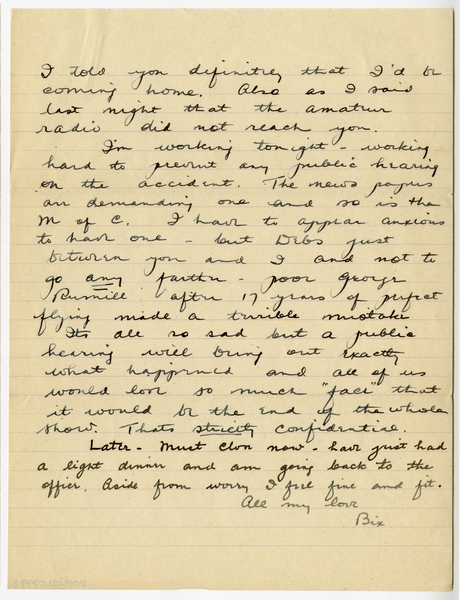 I told you definitley that I'd be
coming home. Also as I said
last night that the amateur
radio did not reach you.
I'm working tonight - working
hard to prevent any public hearing
on the accident. The news papers
are demanding one and so is the
M of C. I have to appear anxious
to have one - but Debs just
between you and I and not to
go any farther - poor George
after 17 years of perfect
flying made a terrible mistake
Its all so sad but a public
hearing will bring out exactly
what happened and all of us
would lose so much "face" that
it would be the end of the whole
show. Thats strictly confidential.
Later - Must close now - have just had
a light dinner and am going back to the
office. Aside from worry I feel fine and fit.
All my love
Bix